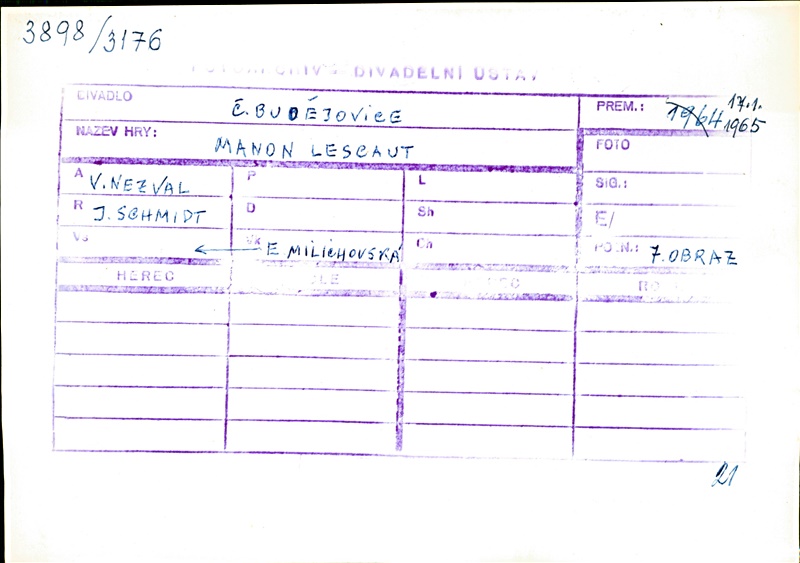 3898/3176
DIVADELNÍ ÚSTAV
DIVADLO Č. BUDĚJOVICE PREM.: 1964 17.1. 1965
NÁZEV HRY: MANON LESCAUT FOTO
A V. NEZVAL P L SIG.:
R J. SCHMIDT D Sh E/
Vs Vk E MILICHOVSKÁ Ch POZN.: 7. OBRAZ
HEREC
21